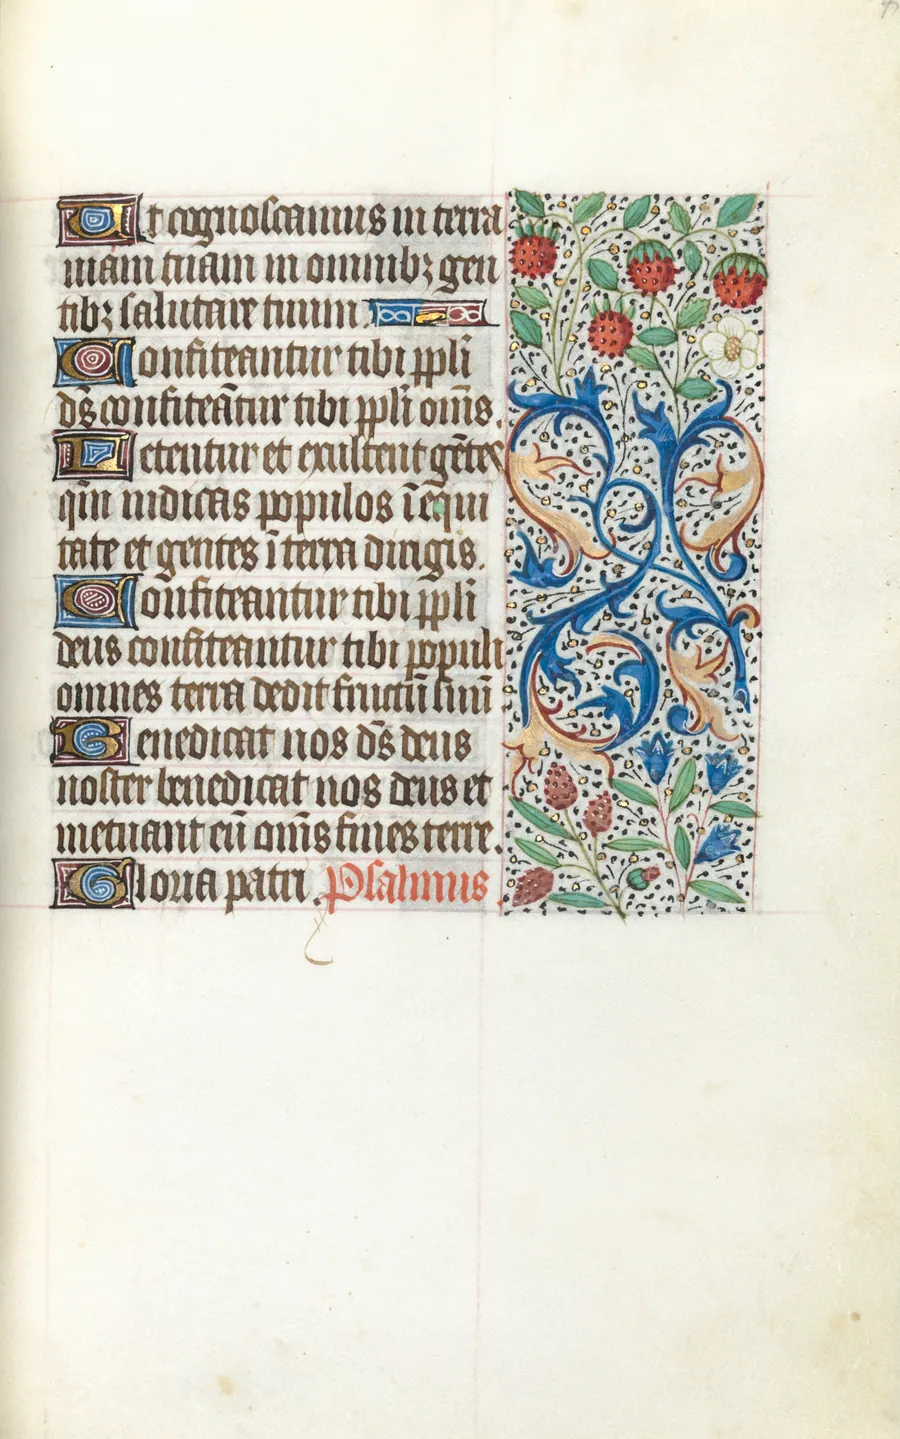 Ut cognoscamus in terra
uiam tuam in omnibꝫ gen
tibꝫ salutare tuum.
Confiteantur tibi pp̄li
ds̄ confiteātur tibi pp̄li om̄s.
Letentur et exultent gētes
qm̄ iudicas populos ī equi
tate et gentes ī terra dirigis.
Confiteantur tibi pp̄li
deus confiteantur tibi populi
omnes terra dedit fructū suū
Benedicat nos ds̄ deus
noster benedicat nos deus et
metuant eū om̄s fines terre.
Gloria patri. Psalmus